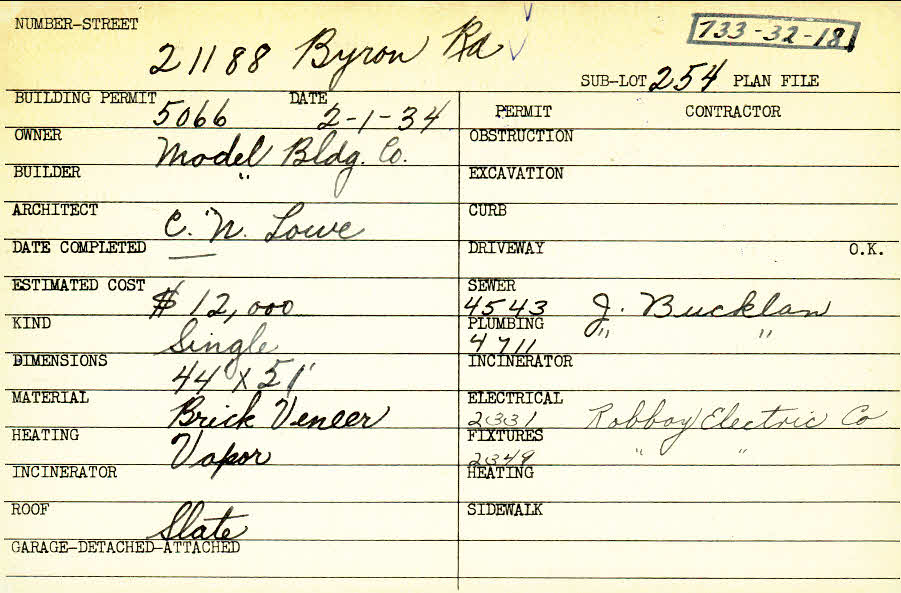 NUMBER-STREET 21188 Byron Rd
733-32-18
SUB-LOT 254 PLAN FILE
BUILDING PERMIT 5066 DATE 2-1-34
OWNER Model Bldg. Co.
BUILDER "
ARCHITECT C. N. Lowe
DATE COMPLETED —
ESTIMATED COST $12,000
KIND Single
DIMENSIONS 44' X 51'
MATERIAL Brick Veneer
HEATING Vapor
INCINERATOR
ROOF Slate
GARAGE-DETACHED-ATTACHED
PERMIT CONTRACTOR
OBSTRUCTION
EXCAVATION
CURB
DRIVEWAY O.K.
SEWER 4543 J. Bucklan
PLUMBING 4711 " "
INCINERATOR
ELECTRICAL 2331 Robboy Electric Co
FIXTURES 2349 " "
HEATING
SIDEWALK